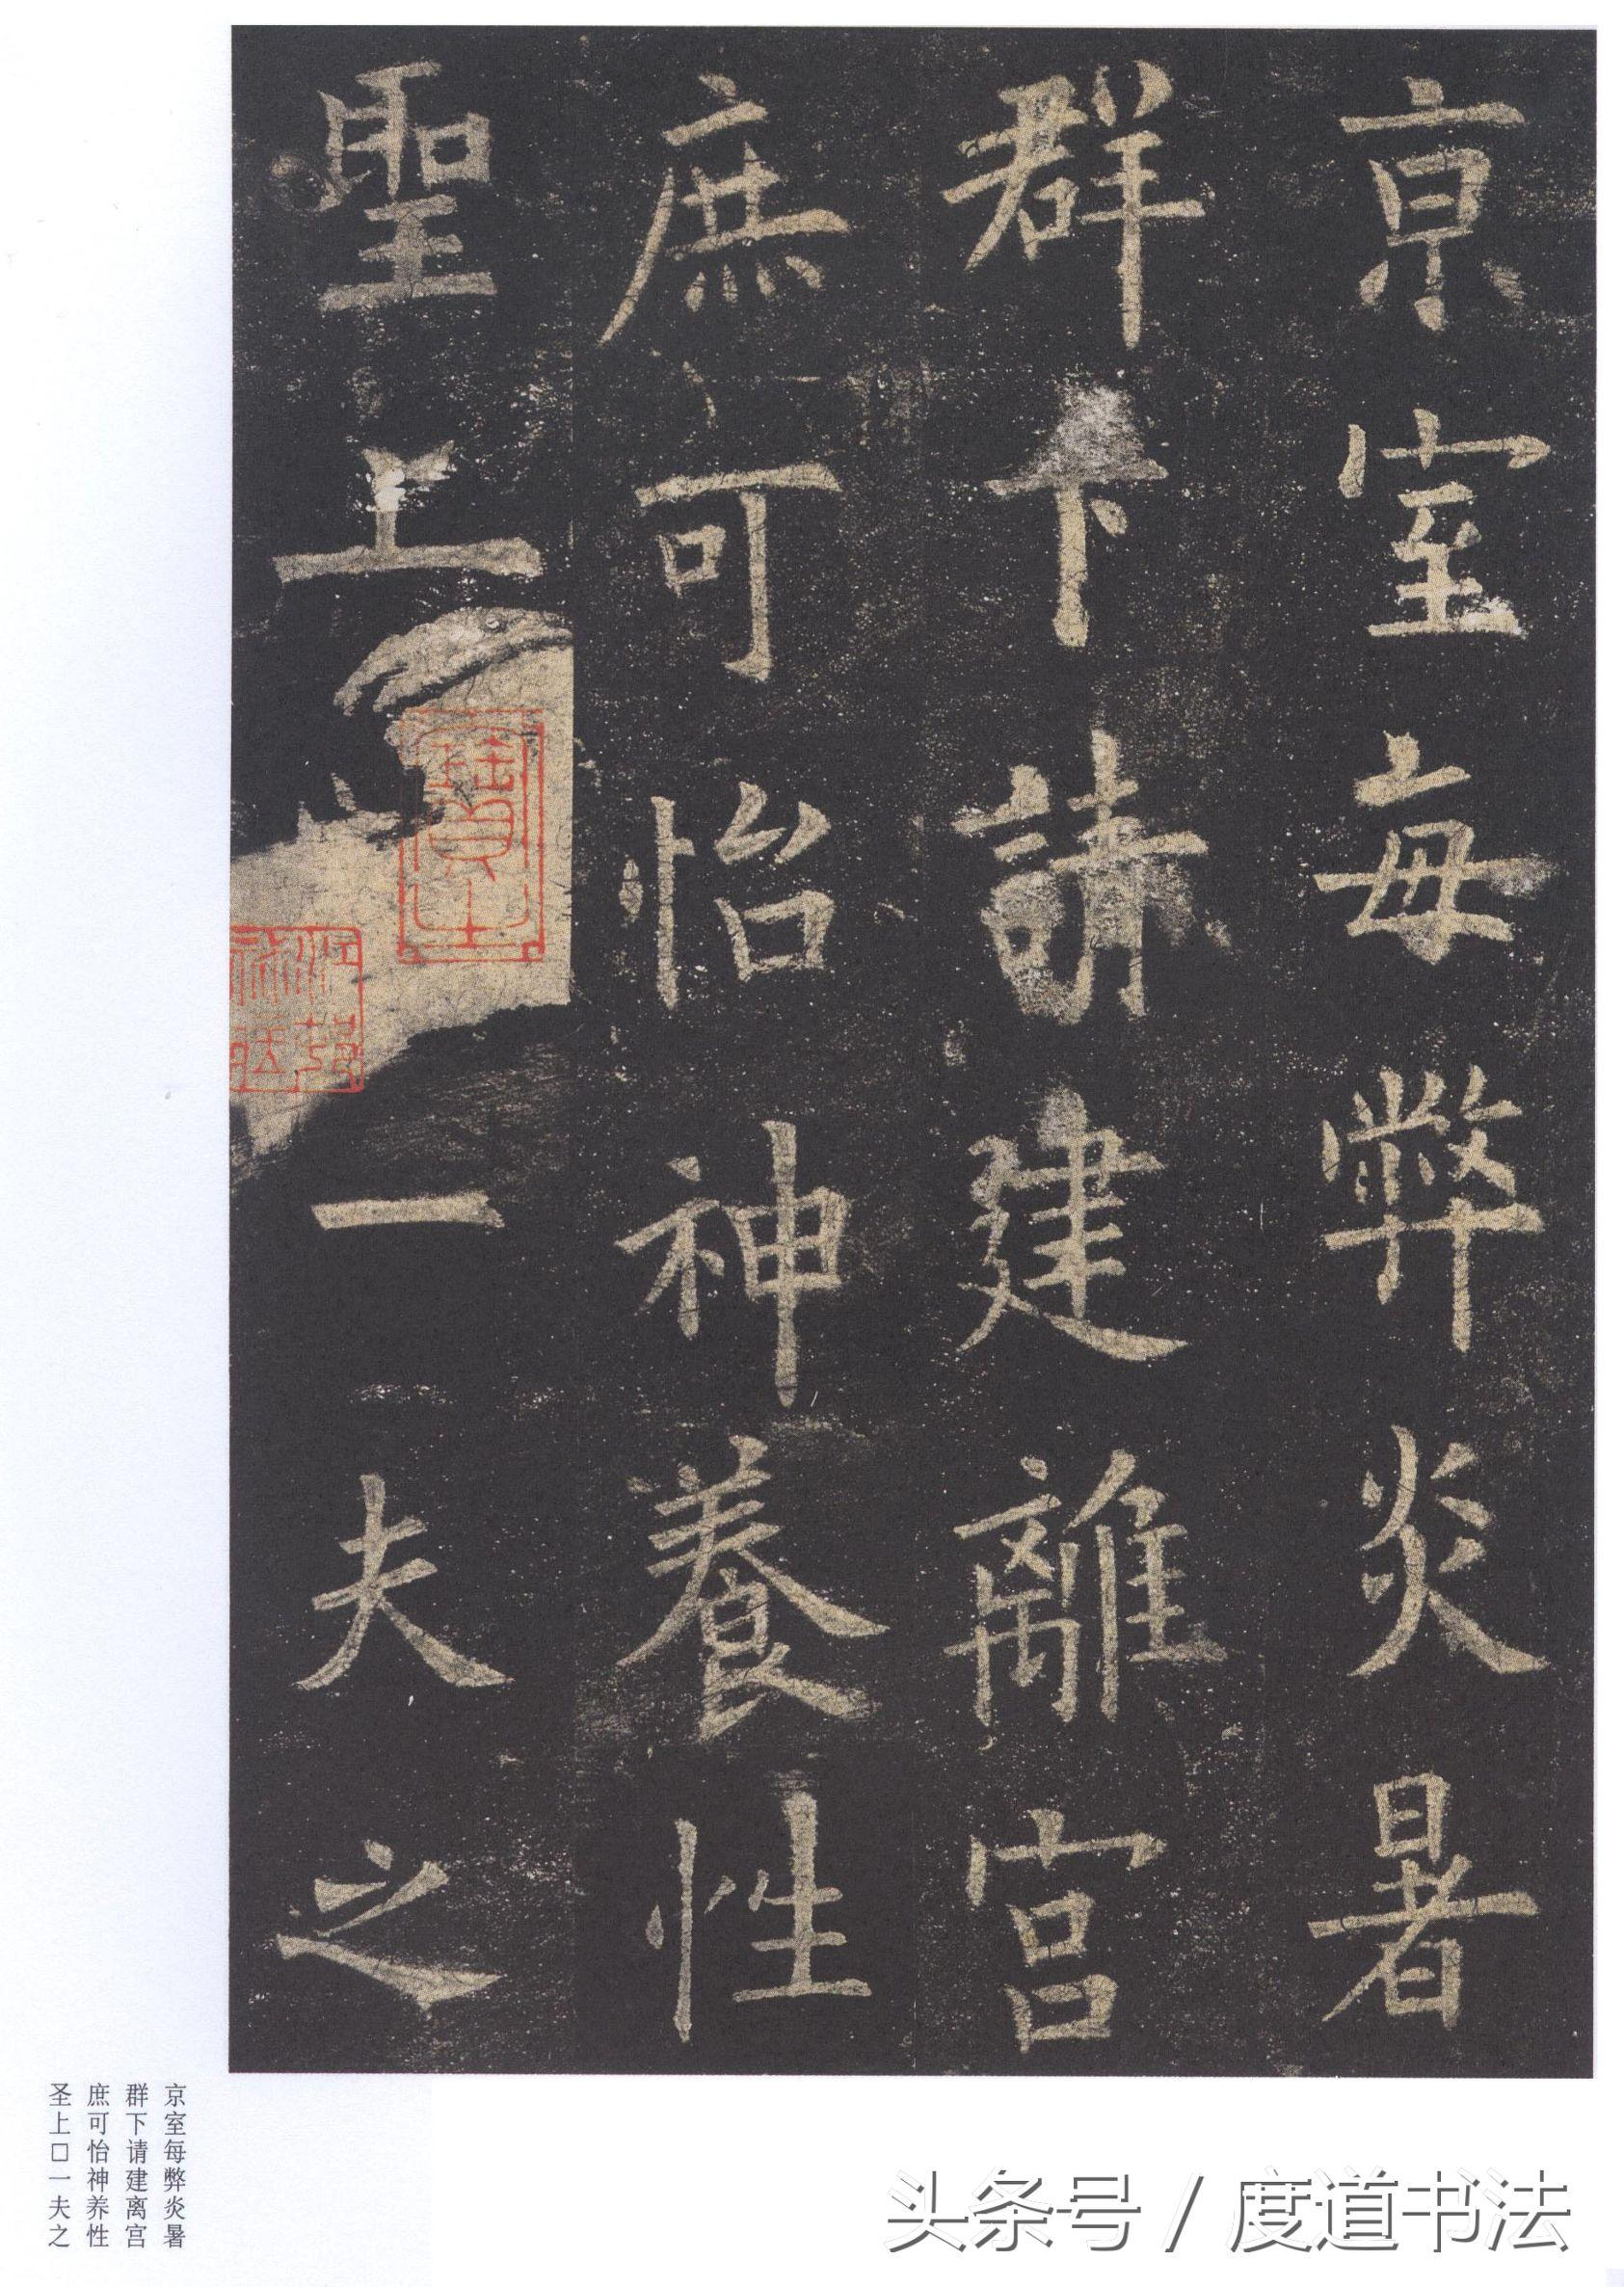 京室每弊炎暑
群下請建離宮
庶可怡神養性
聖上一夫之
京室每弊炎暑
群下请建离宫
庶可怡神养性
圣上□一夫之
头条号 / 度道书法